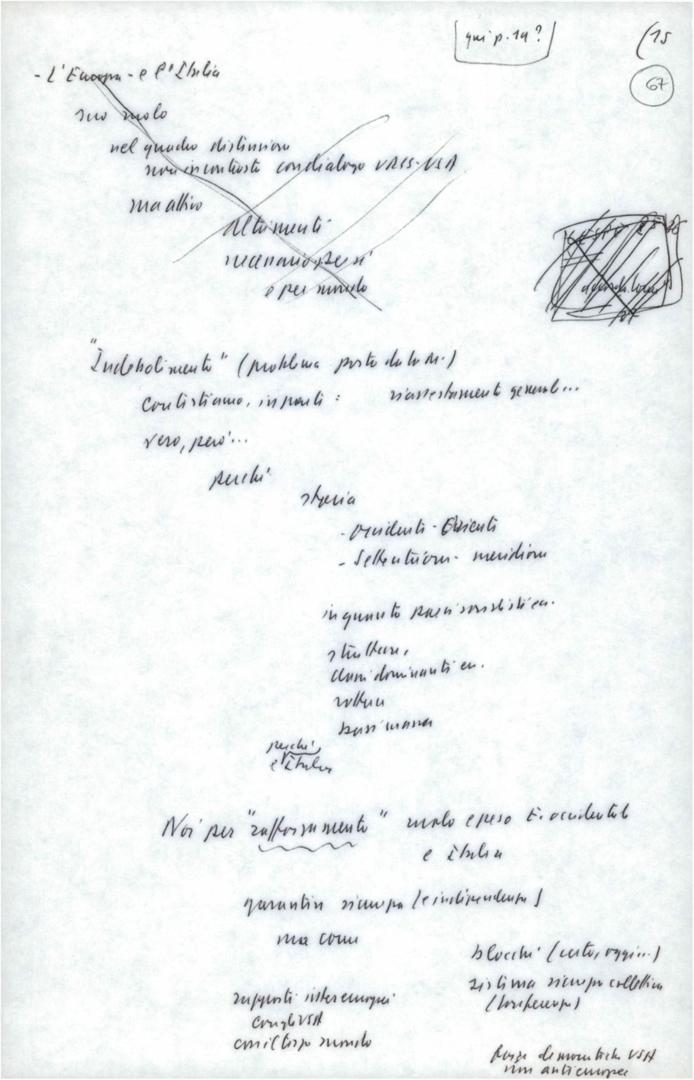 qui p. 19?
(15
67
- L'Europa - e l'Italia
suo ruolo
nel quadro distensione
non in contrasto con dialogo URSS-USA
ma attivo
altrimenti
per sé
e per mondo
"Indebolimento" (problema posto da la M.)
Contestiamo, in parte: riassestamento general...
vero, però...
perché
storia
- occidente - Oriente
- Settentrione - meridione
in quanto
strutture,
classi dominanti ecc.
rottura
bassi massa
perché
e Italia
Noi per "rafforzamento" ruolo e peso E. occidentale
e Italia
garantire sicurezza (e indipendenza)
ma come
blocchi (certo, oggi...)
sistema sicurezza collettiva
(conferenza)
rapporti intereuropei
con gli USA
con il terzo mondo
forze democratiche USA
non antieuropee